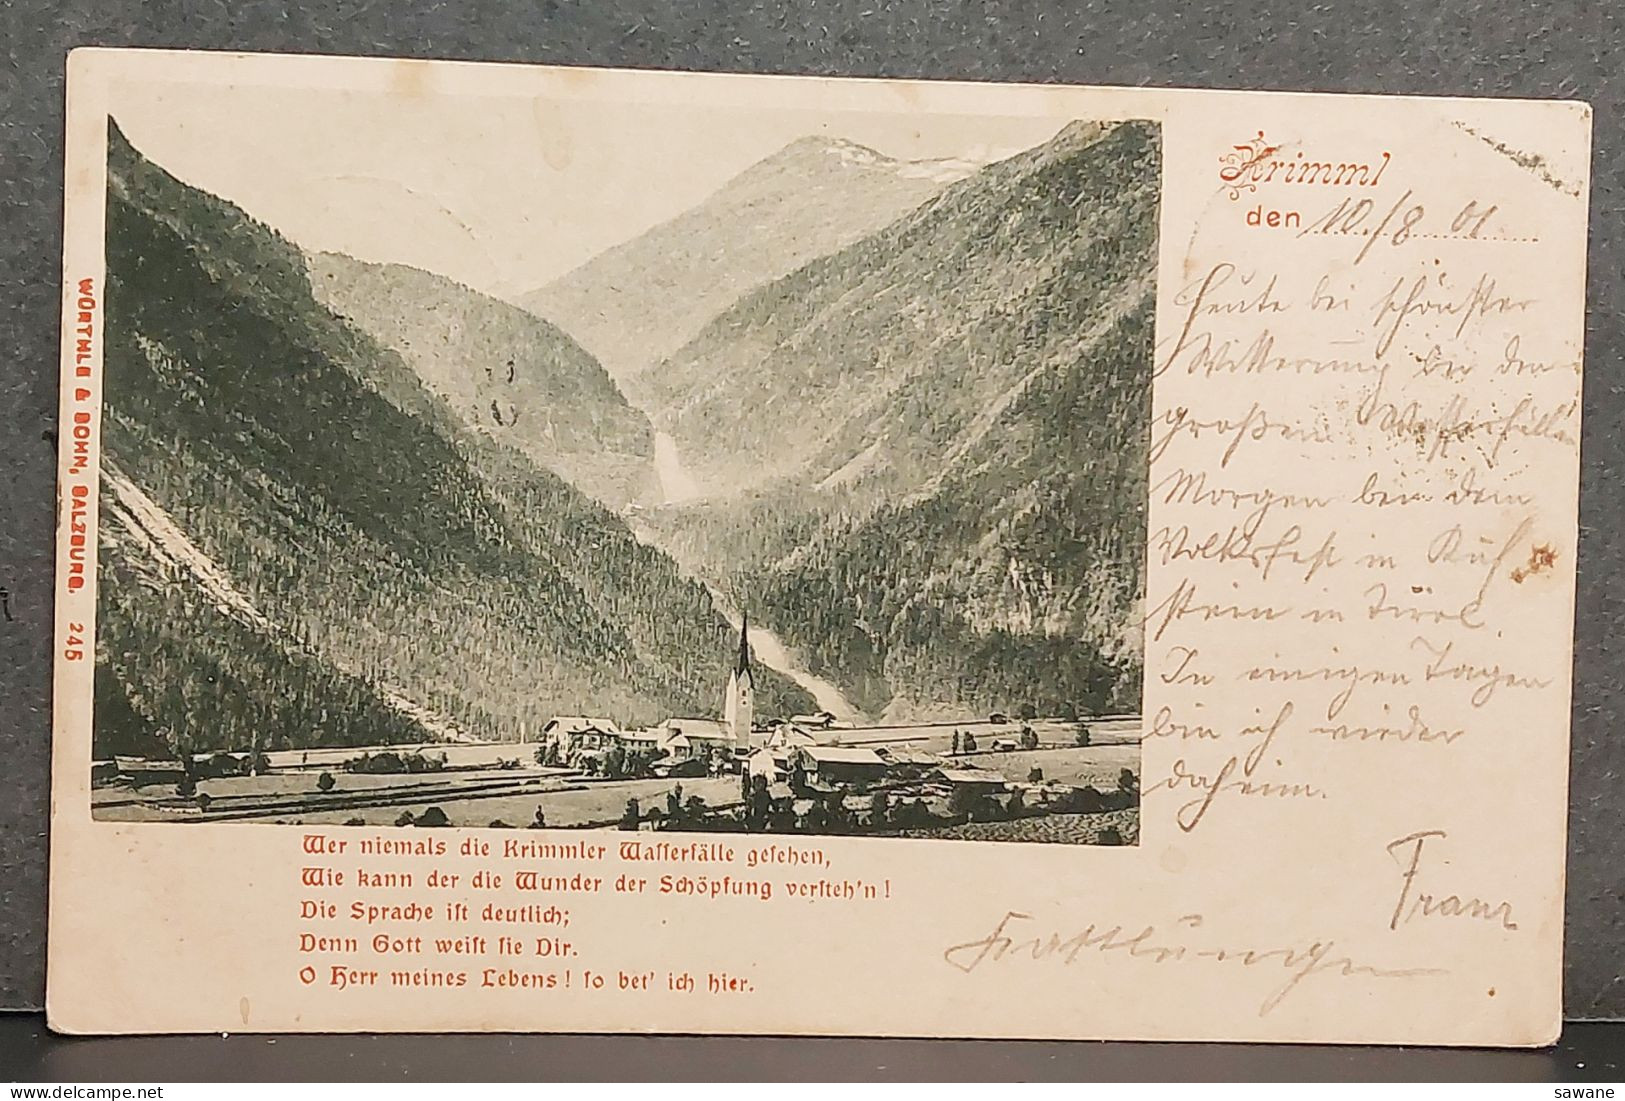 WÜRTHLE & SOHN, SALZBURG. 245
Krimml
den 10./8. 01
Heute bei schönster
Witterung bei den
großen Wasserfällen
Morgen bei dem
Volksfest in Kuf
stein in Tirol.
In einigen Tagen
bin ich wieder
daheim.
Franz
Wer niemals die Krimmler Wasserfälle gesehen,
Wie kann der die Wunder der Schöpfung versteh'n!
Die Sprache ist deutlich;
Denn Gott weist sie Dir.
O Herr meines Lebens! so bet' ich hier.
sawane